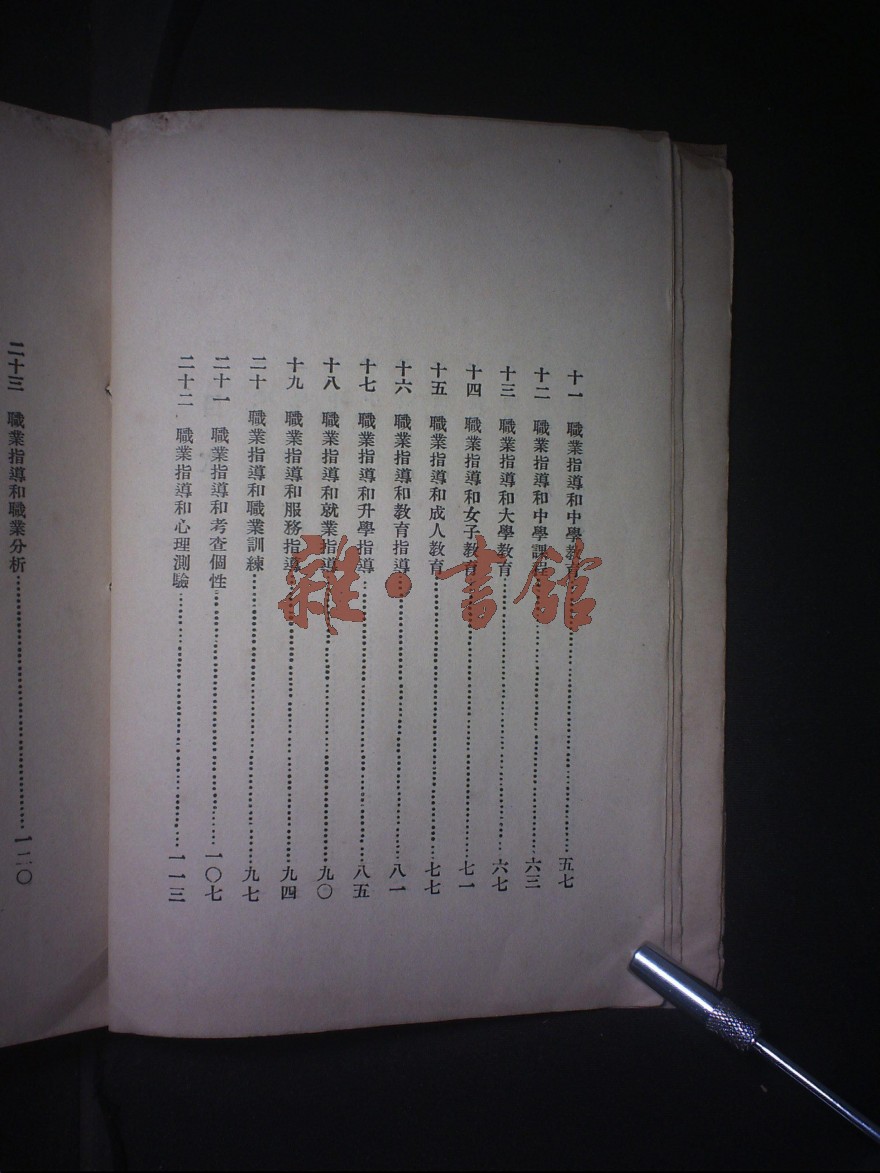 十一 職業指導和中學教育……五七
十二 職業指導和中學課程……六三
十三 職業指導和大學教育……六七
十四 職業指導和女子教育……七一
十五 職業指導和成人教育……七七
十六 職業指導和教育指導……八一
十七 職業指導和升學指導……八五
十八 職業指導和就業指導……九〇
十九 職業指導和服務指導……九四
二十 職業指導和職業訓練……九七
二十一 職業指導和考查個性……一〇七
二十二 職業指導和心理測驗……一一三
二十三 職業指導和職業分析……一二〇
雜·書館